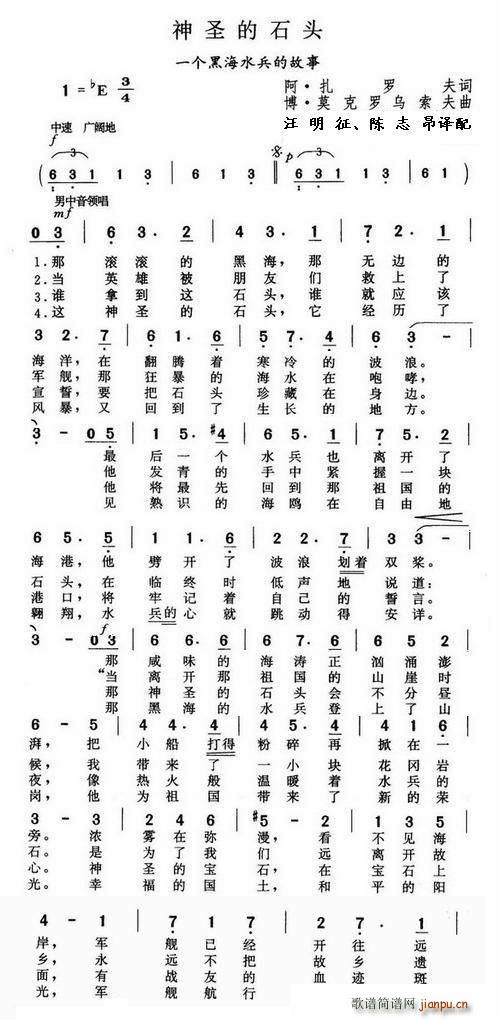 神圣的石头
一个黑海水兵的故事
1=♭E 3/4
阿·扎罗夫词
博·莫克罗乌索夫曲
汪明征、陈志昂译配
中速 广阔地
f
p
(6 3 1 1 3 6 3 1 6 3 1 1 3 6 1)
男中音领唱
mf
0 3 | 6 3. 2 | 4 3. 3 | 7 2. 1 |
1.那 滚滚的 黑海，那 无边的
2.当 英雄被 朋友们 救上了
3.谁 拿到这 石头，谁 就应该
4.这 神圣的 石头，它 经历了
3 2. 7 | 6 1. 6 | 5 7. 4 | 6 3 - |
海洋，在 翻腾着 寒冷的 波浪。
军舰，那 狂暴的 海水在 咆哮，
宣誓，要 把石头 珍藏在 身边。
风暴，又 回到了 生长的 地方。
3 - 0 5 | 1 5. #4 | 5 5. 5 | 7 5. 2 |
最 后一个 水兵也 离开了
他 发青的 手中紧 握一块
他 将最先 回到那 祖国的
见 熟识的 海鸥在 自由地
6 5. 5 | 1 1. 6 | 2 2. 7 | 3 3 - |
海港，他 劈开了 波浪划着 双桨。
石头，在 临终时 低声地 说道：
港口，将 牢记着 自己的 誓言。
翱翔，水 兵的心就 跳动得 安详。
f
3 - 0 3 | 6 6. 6 | 7 6 5 | 6 5 2 |
那 咸味的 海涛正 汹涌澎
“当 离开那 祖国的 山崖时
那 神圣的 石头会 不分昼
那 黑海的 水兵登 上了山
6 - 5 | 4 4. 4 | 5 4 4 | 5 4 2 |
湃，把 小船打得 粉碎再 掀在一
候，我 带来了 一小块 花冈岩
夜，像 热火般 温暖着 水兵的
岗，他 为祖国 带来了 新的荣
3 - 3 | 2 4 6 | #5 - 2 | 1 3 5 |
旁。浓 雾在弥 漫，看 不见海
石。是 为了我 们 远 离开故
心。神 圣的宝 石，在 宝石上
光。幸 福的国 土，和 平的阳
4 - 1 | 7 1 7 | 5 7. 1 |
岸，军 舰已经 开往远
乡，永 远不把 故乡遗
面，有 战友的 血迹斑
光，军 舰航行
歌谱简谱网
jianpu.cn